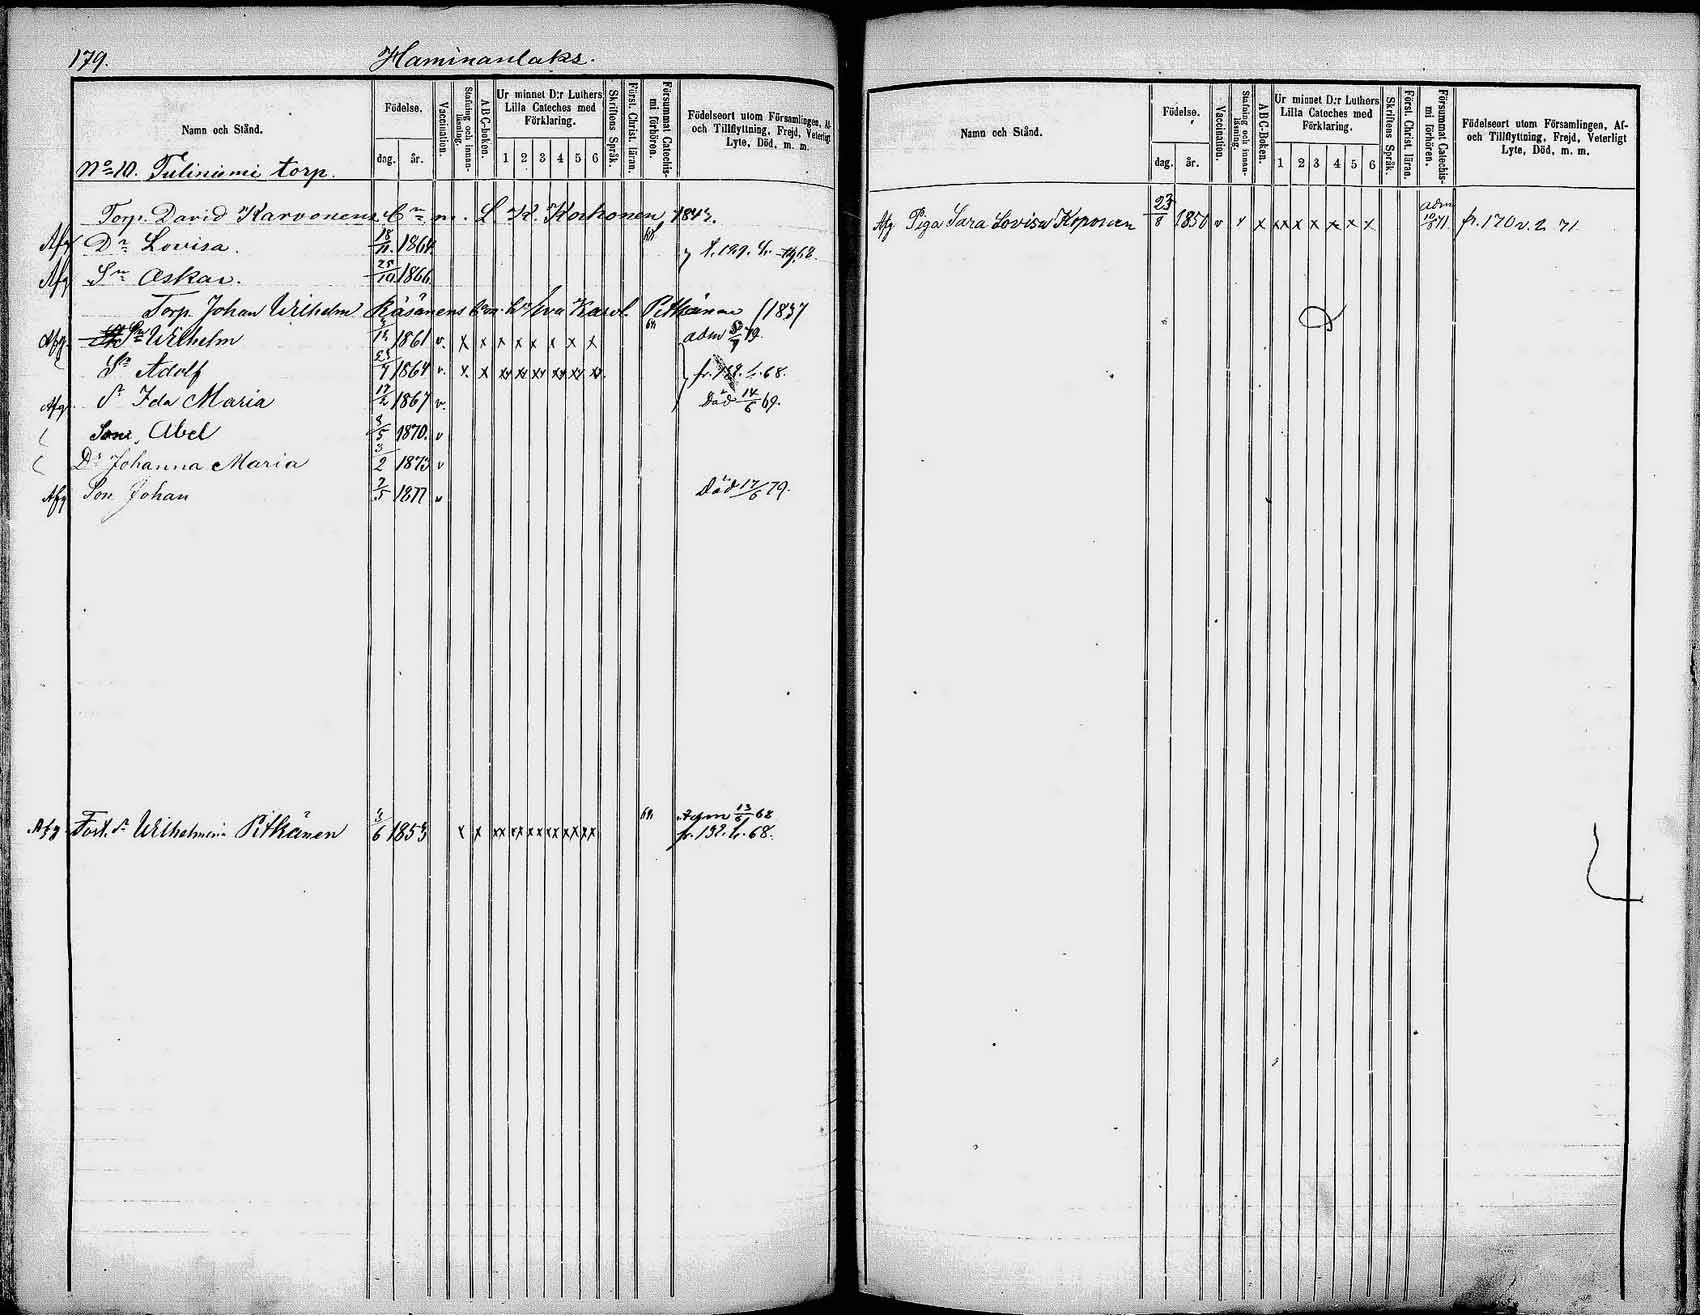 179. Haminanlaks.
Namn och Stånd.
Födelse.
dag. år.
Vaccination.
Stafning och innan-läsning.
ABC-boken.
Ur minnet D:r Luthers Lilla Cateches med Förklaring.
1 2 3 4 5 6
Skriftens Språk.
Först. Christ. läran.
Försummat Catechis-mi förhören.
Födelseort utom Församlingen, Af- och Tillflyttning, Frejd, Veterligt Lyte, Död, m. m.
No 10. Tuliniemi torp.
Torp. David Karvonens m. L. K. Korhonen 1843.
Afg Dr Lovisa. 18/11 1864 f. 189. fr. 68.
Afg Sn Oskar. 25/10 1866
Torp. Johan Wilhelm Räsänens Eva Karol. Pitkänen 1837
Afg Sn Wilhelm 1861 v. x x x x x x x x adm 79.
Sn Adolf 1864 v. x x xx xx xx xx xx xx fr. 68.
Afg. Dr Ida Maria 17/2 1867 v. Död 14/6 69.
Son, Abel 3/5 1870. v
Dr Johanna Maria 3/2 1873 v
Afg Son Johan 3/5 1877 v Död 17/6 79.
Afg Fost. dr Wilhelmina Pitkänen 3/6 1853 x x xx xx xx xx xx xx Adm 13/6 68
fr. 132. fr. 68.
Namn och Stånd.
Födelse.
dag. år.
Vaccination.
Stafning och innan-läsning.
ABC-Boken.
Ur minnet D:r Luthers Lilla Cateches med Förklaring.
1 2 3 4 5 6
Skriftens Språk.
Först. Christ. läran.
Försummat Catechis-mi förhören.
Födelseort utom Församlingen, Af- och Tillflyttning, Frejd, Veterligt Lyte, Död, m. m.
Afg Piga Sara Lovisa Koponen 23/8 1850 v x x xx x x x x x adm 10/8 71 fr. 170 v. 2 71